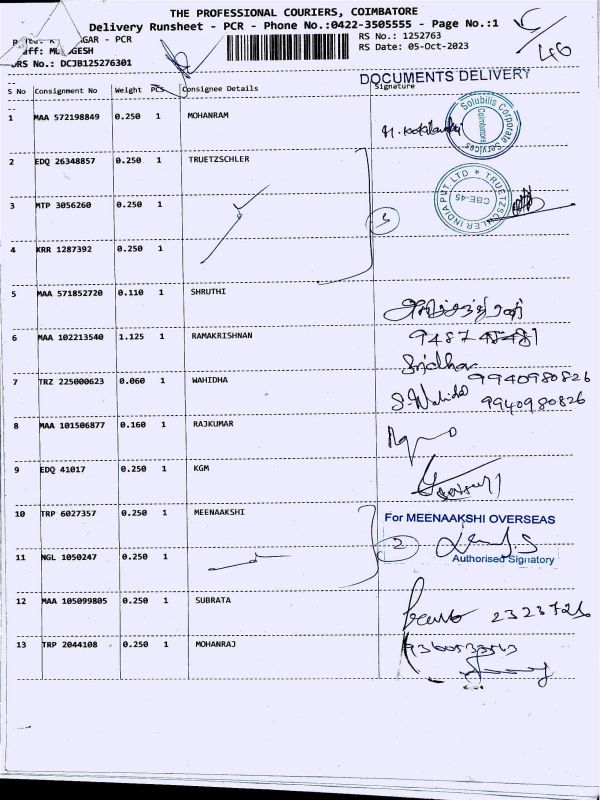 THE PROFESSIONAL COURIERS, COIMBATORE
Delivery Runsheet - PCR - Phone No.:0422-3505555 - Page No.:1
GAR - PCR
RS No.: 1252763
RS Date: 05-Oct-2023
DRS No.: DCJB125276301
46
DOCUMENTS DELIVERY
S No Consignment No Weight PCS Consignee Details Signature
1 MAA 572198849 0.250 1 MOHANRAM
Solubilis Corporate Services Coimbatore
2 EDQ 26348857 0.250 1 TRUETZSCHLER
TRUETZSCHLER INDIA PVT. LTD * CBE-45
3 MTP 3056260 0.250 1
3
4 KRR 1287392 0.250 1
5 MAA 571852720 0.110 1 SHRUTHI
6 MAA 102213540 1.125 1 RAMAKRISHNAN
Sridhar
9940980826
7 TRZ 225000623 0.060 1 WAHIDHA
S. Wahida 9940980826
8 MAA 101506877 0.160 1 RAJKUMAR
9 EDQ 41017 0.250 1 KGM
10 TRP 6027357 0.250 1 MEENAAKSHI
For MEENAAKSHI OVERSEAS
2
11 NGL 1050247 0.250 1
Authorised Signatory
12 MAA 105099805 0.250 1 SUBRATA
2323726
13 TRP 2044108 0.250 1 MOHANRAJ